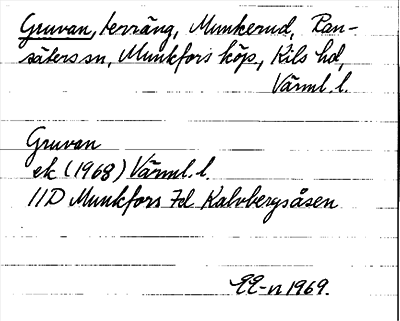 Gruvan, terräng, Munkerud, Ran-
säters sn, Munkfors köp, Kils hd,
Värml. l.
Gruvan
ek (1968) Värml. l.
11D Munkfors 7d Kalvbergsåsen
1969.